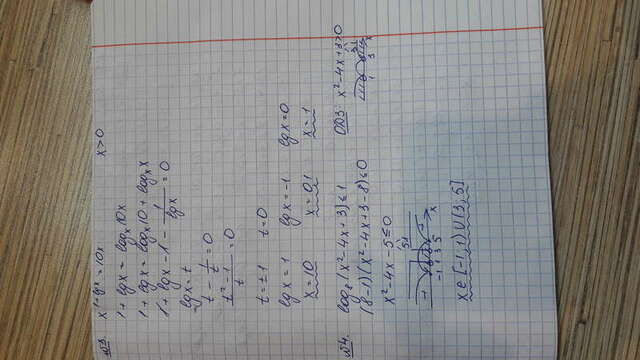 №3. x^(1+lgx) = 10x x>0
1 + lgx = log_x 10x
1 + lgx = log_x 10 + log_x x
1 + lgx - 1 - 1/lgx = 0
lgx = t
t - 1/t = 0
(t² - 1)/t = 0
t = ±1 t = 0
lgx = 1 lgx = -1 lgx = 0
x = 10 x = 0,1 x = 1
№4. log_8 (x² - 4x + 3) ≤ 1 ОДЗ: x² - 4x + 3 > 0
(8-1)(x² - 4x + 3 - 8) ≤ 0 3 1
x² - 4x - 5 ≤ 0 1 3 x
5 -1
+ - +
-1 1 3 5 x
x ∈ [-1; 1) ∪ (3; 5]